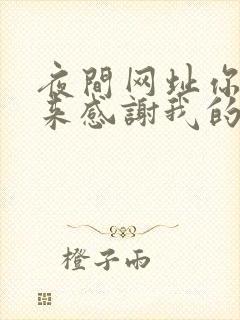 夜間网址你
来感謝我的
橙子雨